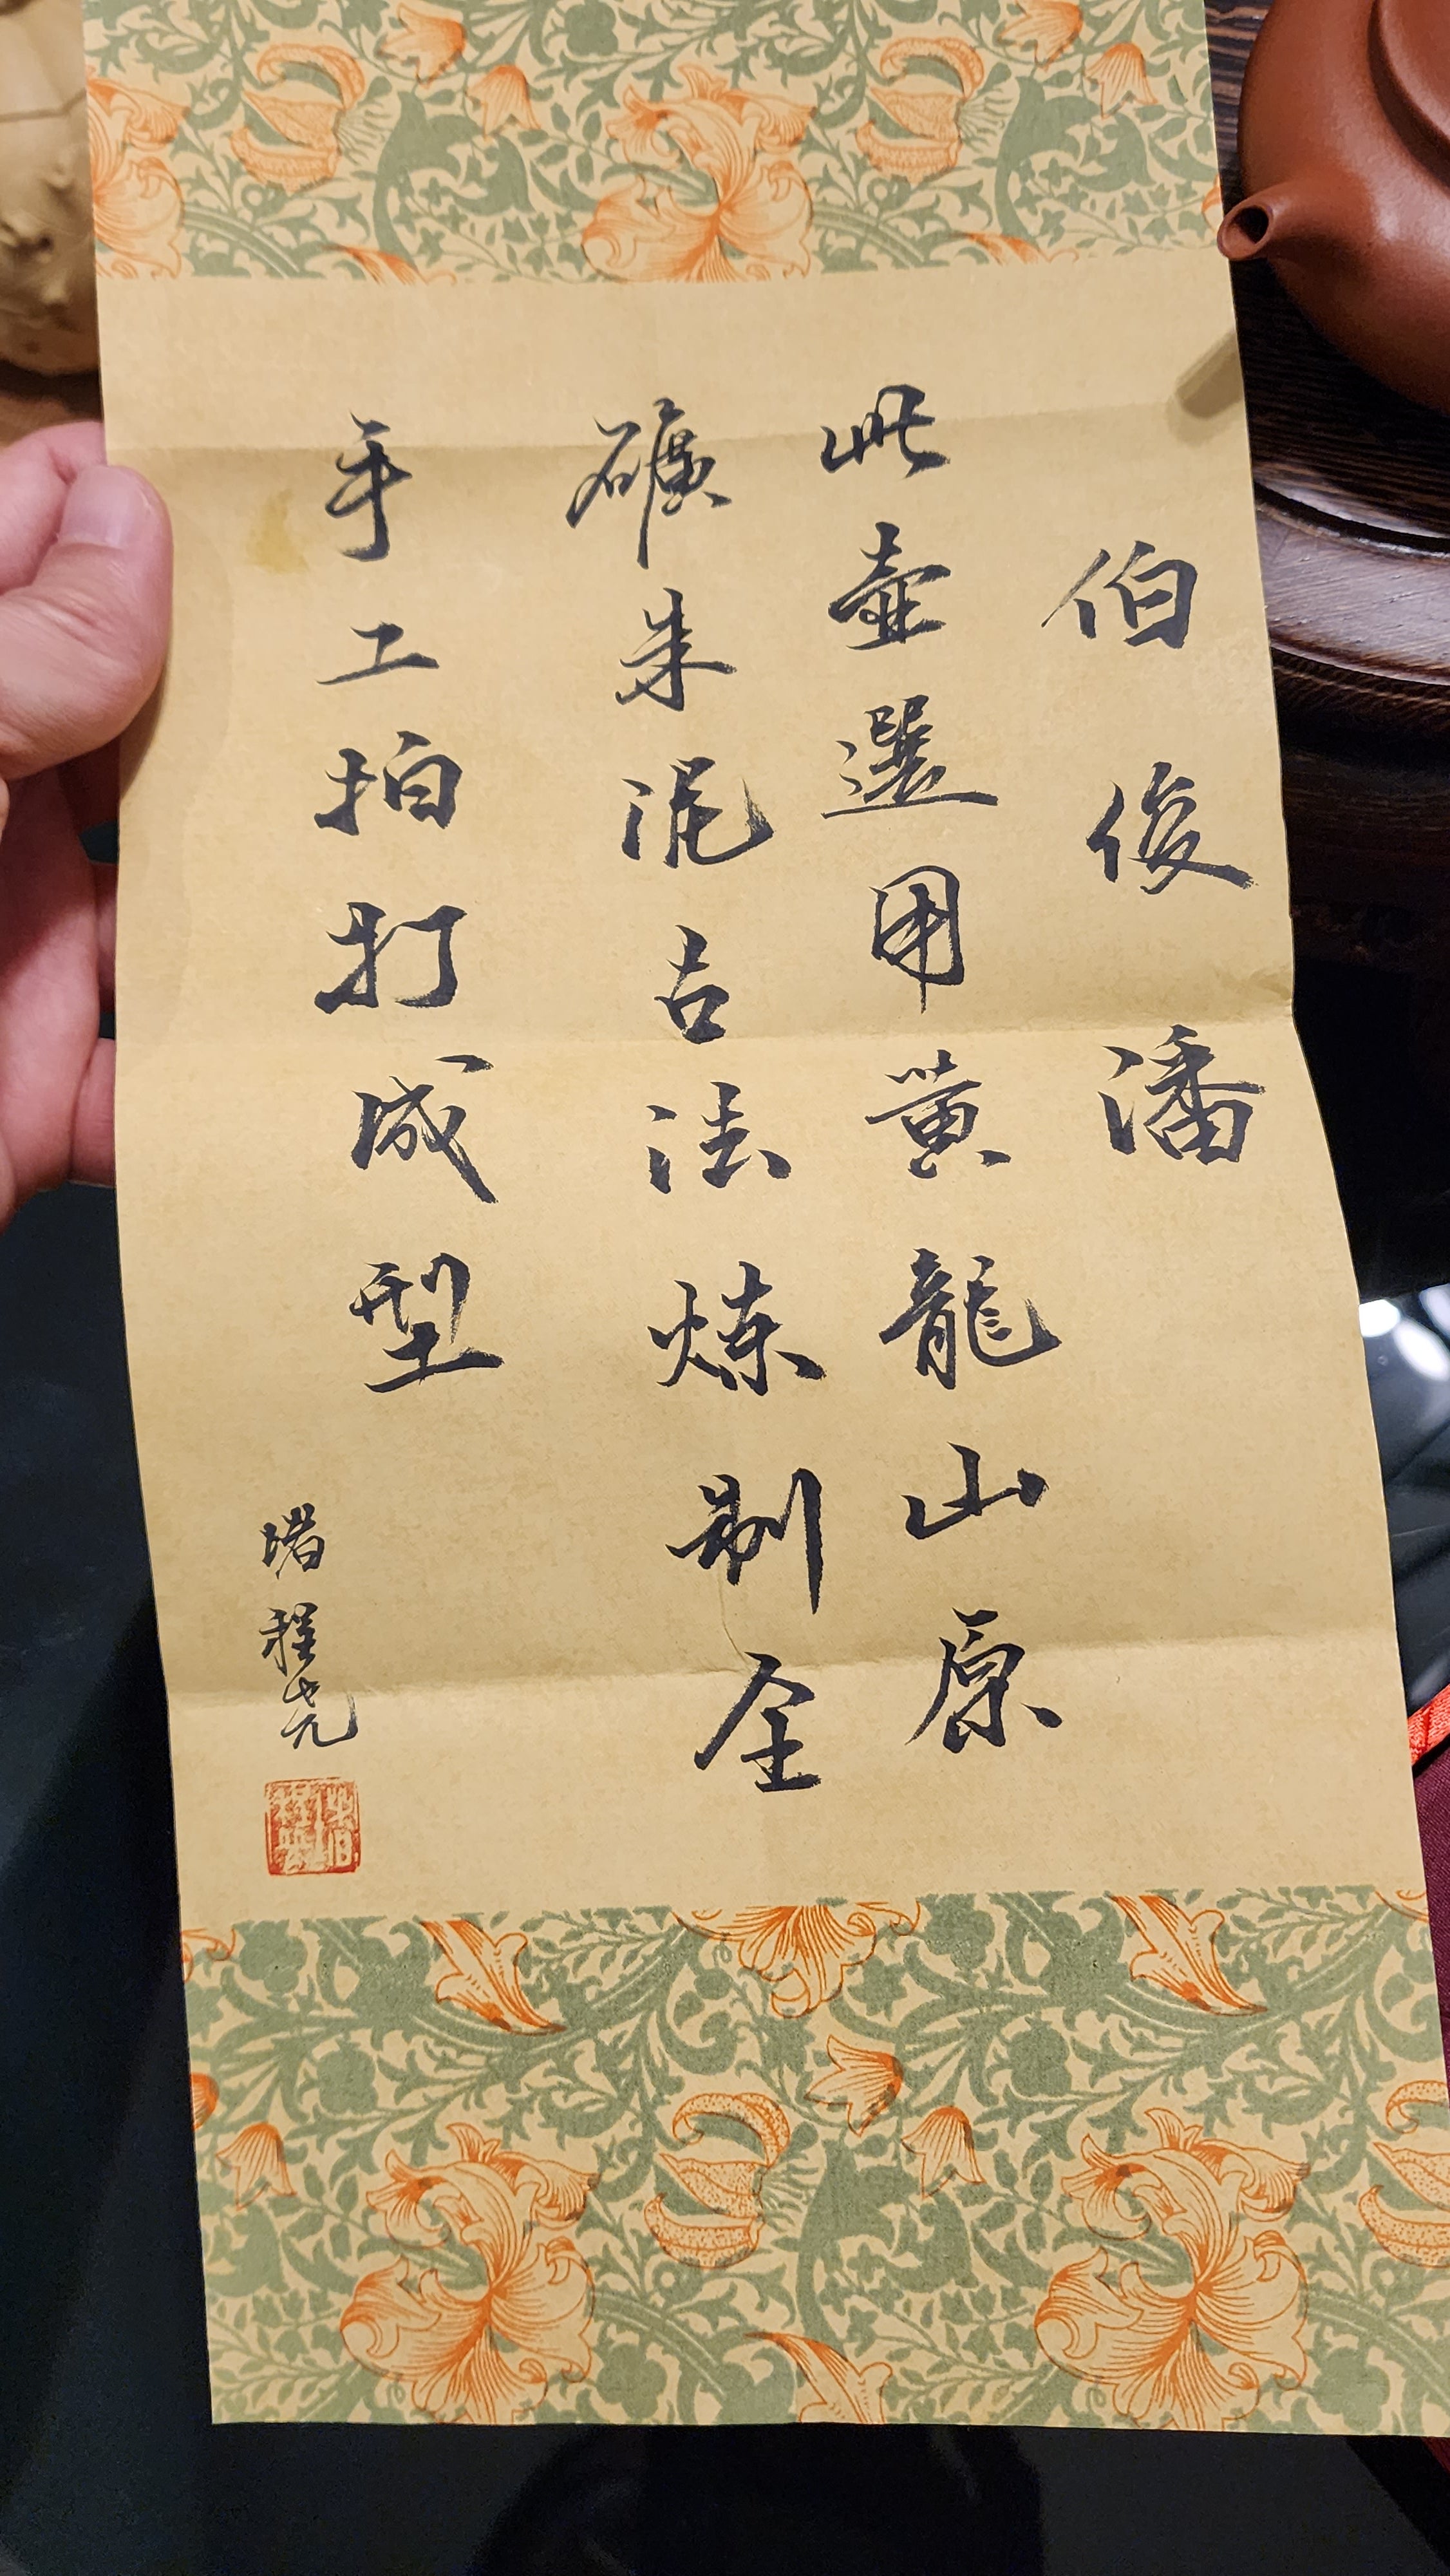 伯俊潘
此壺選用黄龍山原
礦朱泥古法炼制全
手工拍打成型
堵程尧